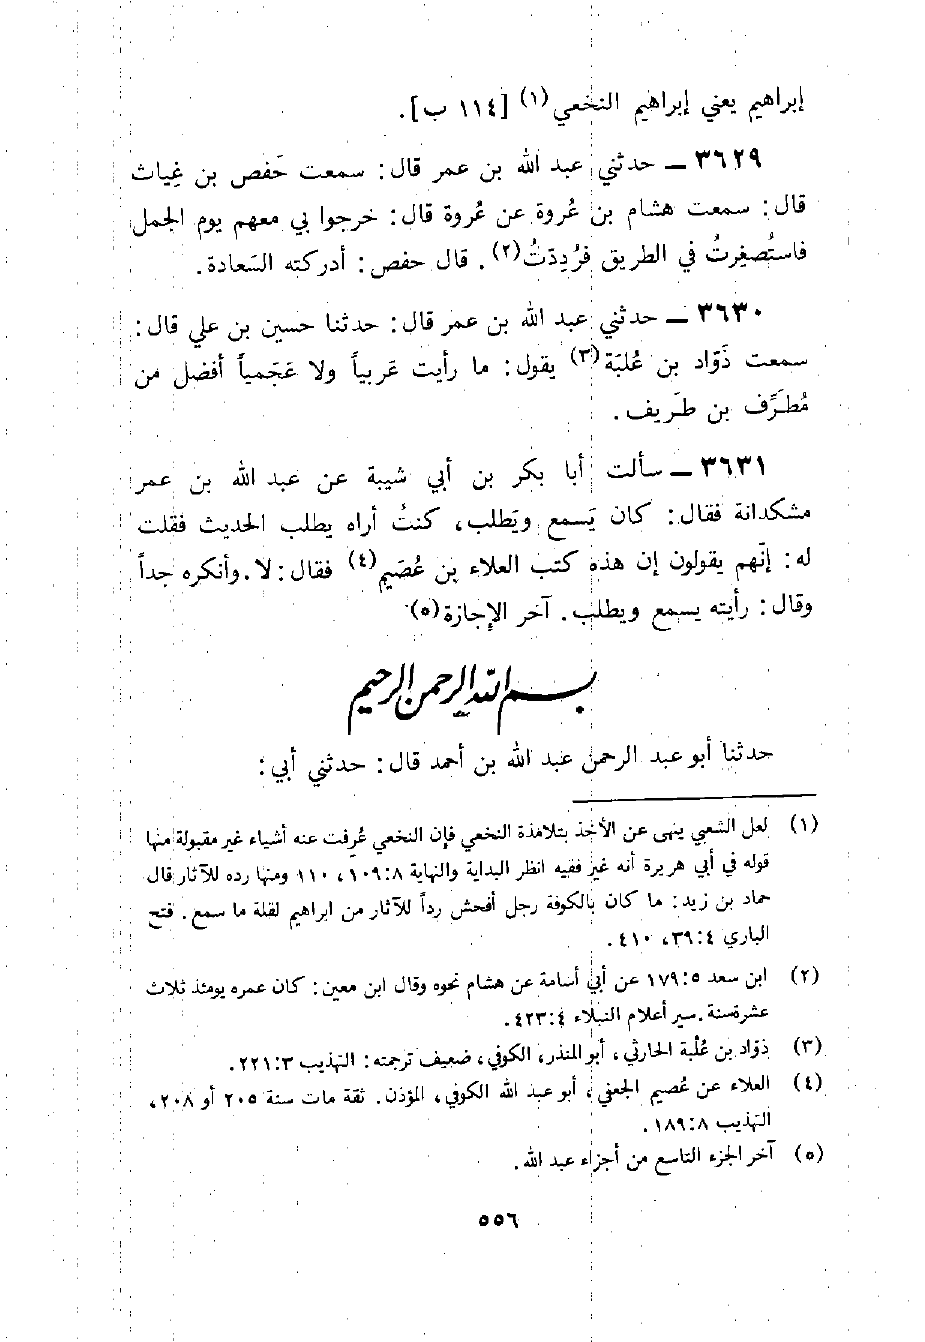 إبراهيم يعني إبراهيم النخعي (١) [١١٤ ب].
٣٦٢٩ ــ حدثني عبد الله بن عمر قال: سمعت حَفص بن غِياث
قال: سمعت هشام بن عُروة عن عُروة قال: خرجوا بي معهم يوم الجمل
فاستُصغِرتُ في الطريق فَرُدِدَتُ (٢). قال حفص: أدركته السَعادة.
٣٦٣٠ ــ حدثني عبد الله بن عمر قال: حدثنا حسين بن علي قال:
سمعت ذَوّاد بن عُلبَة (٣) يقول: ما رأيت عَربياً ولا عَجَمياً أفضل من
مُطَرِّف بن طَريف.
٣٦٣١ ــ سألت أبا بكر بن أبي شيبة عن عبد الله بن عمر
مشكدانة فقال: كان يَسمع ويَطلب، كنتُ أراه يطلب الحديث فقلت
له: إنّهم يقولون إن هذه كتب العلاء بن عُصَيم (٤) فقال: لا. وأنكره جداً
وقال: رأيته يسمع ويطلب. آخر الإجازة (٥)
بسم الله الرحمن الرحيم
حدثنا أبو عبد الرحمن عبد الله بن أحمد قال: حدثني أبي:
(١) لعل الشعبي ينهى عن الأخذ بتلامذة النخعي فإن النخعي عُرفت عنه أشياء غير مقبولة منها
قوله في أبي هريرة أنه غير فقيه انظر البداية والنهاية ٨: ١٠٩، ١١٠ ومنها رده للآثار قال
حماد بن زيد: ما كان بالكوفة رجل أفحش رداً للآثار من ابراهيم لقلة ما سمع. فتح
الباري ٤: ٣٩، ٤١٠.
(٢) ابن سعد ٥: ١٧٩ عن أبي أسامة عن هشام نحوه وقال ابن معين: كان عمره يومئذ ثلاث
عشرة سنة. سير أعلام النبلاء ٤: ٤٢٣.
(٣) ذوّاد بن عُلْبة الحارثي، أبو المنذر، الكوفي، ضعيف ترجمته: التهذيب ٣: ٢٢١.
(٤) العلاء عن عُصيم الجعفي، أبو عبد الله الكوفي، المؤذن. ثقة مات سنة ٢٠٥ أو ٢٠٨،
التهذيب ٨: ١٨٩.
(٥) آخر الجزء التاسع من أجزاء عبد الله.
٥٥٦